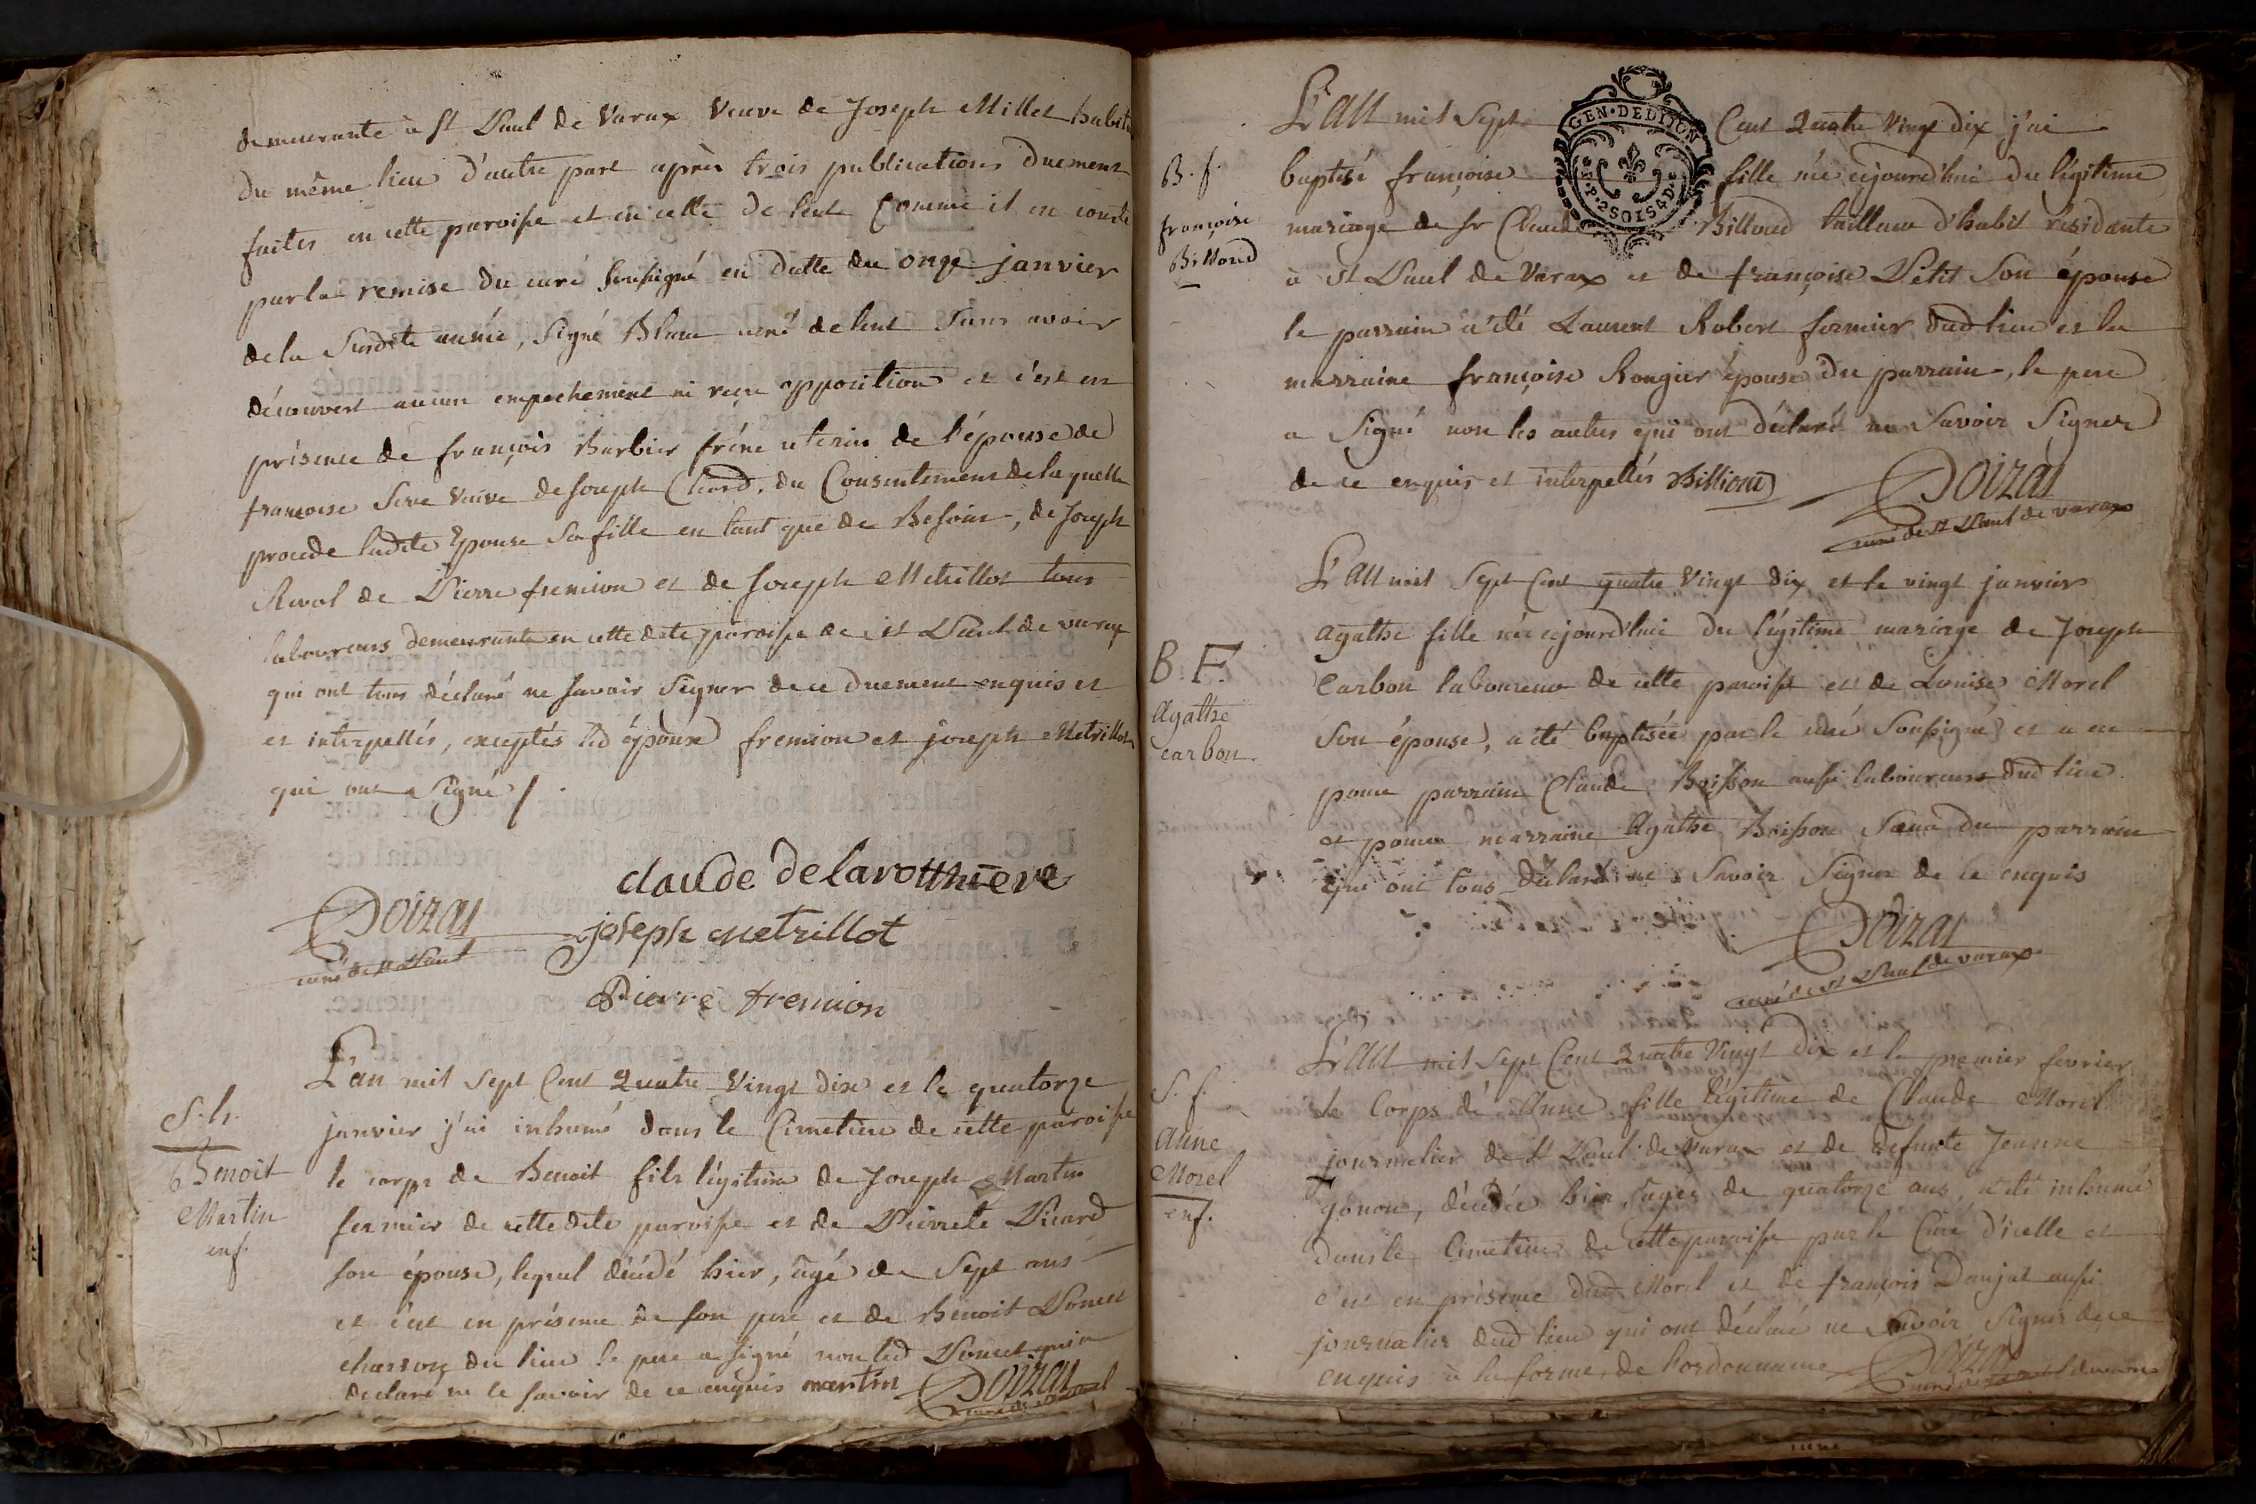 demeurante à St Paul de Varax veuve de Joseph Millet habité
du même lieu d'autre part après trois publications duement
faites en cette paroisse et en celle de lent comme il en conste
par la remise du curé soussigné en datte du onze janvier
de la susdite année, signé Blanc curé de lent sans avoir
découvert aucun empechement ni reçu opposition et c'est en
présence de françois Barbier frére uterin de l'épouse de
françoise Serve veuve de Joseph Chard, du Consentement de laquelle
procede ladite Epouse sa fille en tant que de Besoin, de Joseph
Revol de Pierre fremion et de Joseph Metrillot tous
laboureurs demeurants en cette dite paroisse de St Paul de varax
qui ont tous déclaré ne savoir signer de ce duement enquis et
et interpellés, exceptés led époux fremion et joseph Metrillot
qui ont signé /.
claude Delarotthiere
Doizat
curé de st Paul
joseph metrillot
Pierre fremion
S. h.
Benoit
Martin
enf.
L'an mil sept Cent Quatre Vingt dix et le quatorze
janvier j'ai inhumé dans le Cimetiere de cette paroisse
le corps de Benoit fils légitime de Joseph Martin
fermier de cette dite paroisse et de Pierrete Picard
son épouse, lequel décédé hier, âgé de sept ans
et c'est en présence de son pere et de Benoit Poncet
charron du lieu le pere a signé non led Poncet qui a
declaré ne le savoir de ce enquis martin Doizat
B. f.
françoise
Billoud
GEN. DE DIJON
L'an mil sept Cent Quatre Vingt dix j'ai
baptisé françoise fille née cejourd'hui du légitime
mariage de Sr Claude Billoud tailleur d'habit résidante
à St Paul de Varax et de françoise Petit son épouse
le parrain a été Laurent Robert fermier dud lieu et la
marraine françoise Rougier épouse du parrain, le pere
a signé non les autres qui ont déclaré ne savoir signer
de ce enquis et interpellés Billioud
Doizat
curé de st Paul de varax
B. F.
Agathe
carbon.
L'an mil sept Cent quatre vingt dix et le vingt janvier
Agathe fille née cejourd'hui du légitime mariage de Joseph
Carbon laboureur de cette paroisse et de Louise Morel
son épouse, a été baptisée par le curé soussigné et a eu
pour parrain Claude Boisson aussi laboureur dud lieu
et pour marraine Agathe Boisson sœur du parrain
qui ont tous déclaré ne savoir signer de ce enquis
Doizat
curé de st Paul de varax
S. f.
Anne
Morel
enf.
L'an mil sept Cent Quatre Vingt Dix et le premier fevrier
le Corps de Anne fille légitime de Claude Morel
journalier de St Paul de Varax et de defunte Jeanne
gonon, décédée hier, agée de quatorze ans, a été inhumé
dans le Cimetiere de cette paroisse par le Curé d'icelle et
c'est en présence dud Morel et de françois Danjat aussi
journalier dud lieu qui ont déclaré ne savoir signer de ce
enquis à la forme de l'ordonnance Doizat